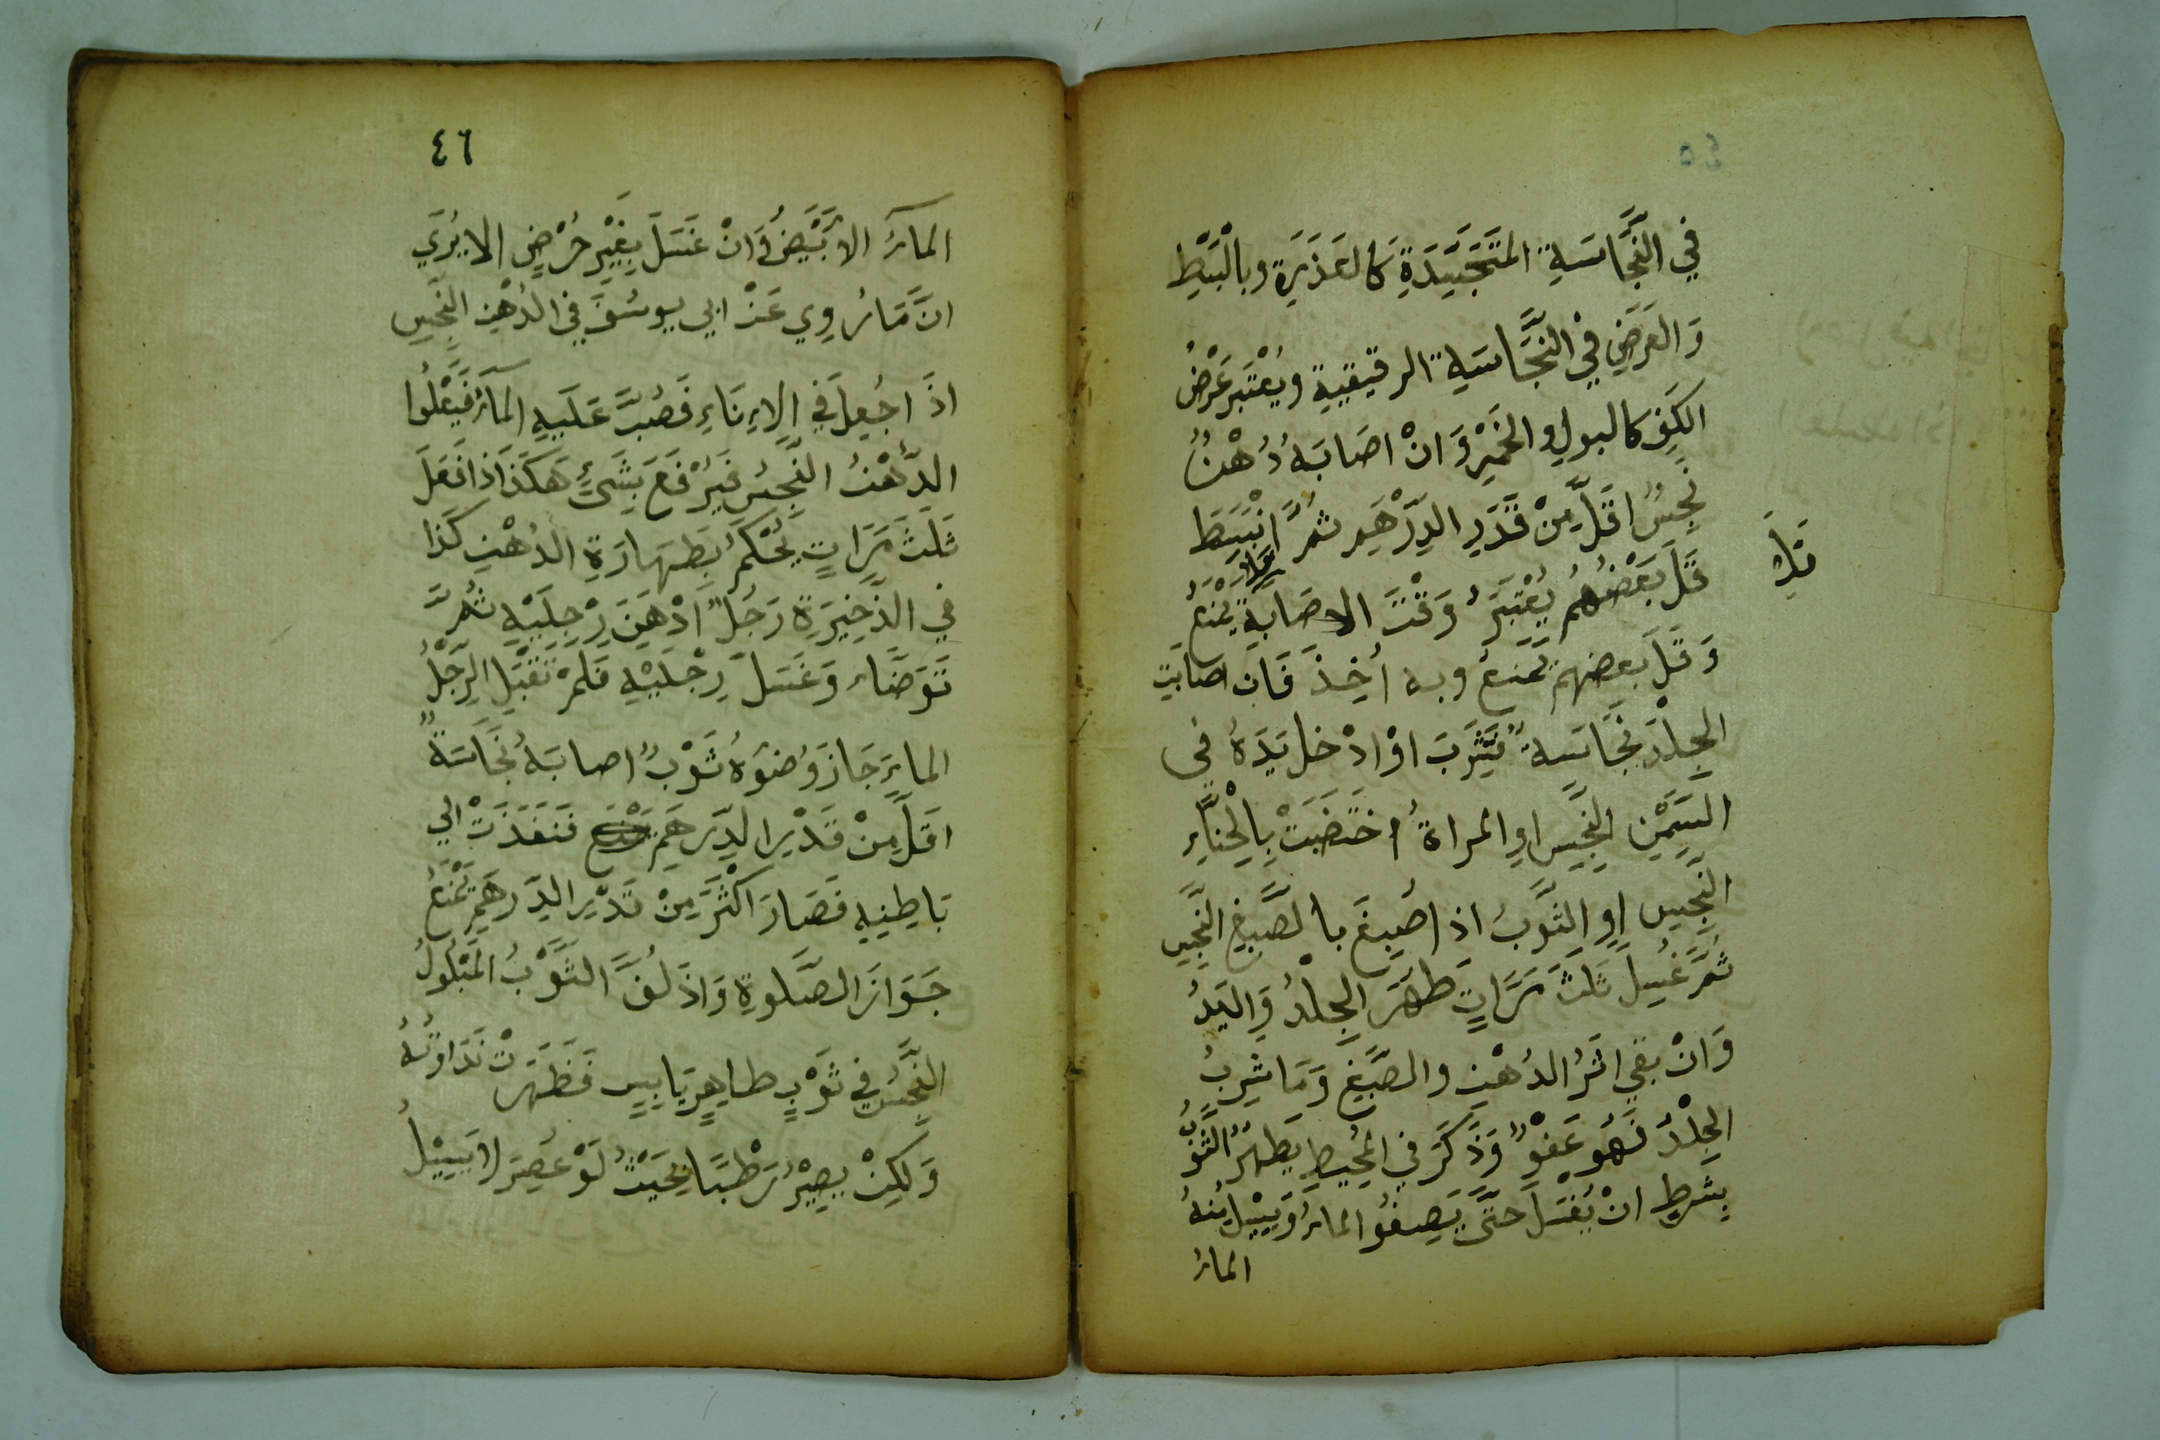 ٤٥
في النَّجَّاسَةِ المتَجَسِّدَةِ كالعَذَرَةِ وبالْبَسْطِ
وَالعَرَضِ في النَجَّاسَةِ الرقيقيةِ ويُعْتَبَر عَرْضُ
الكَفِ كالبولِ والخَمْرِ وَانْ اصَابَهُ دُهْنٌ
نَجِسٌ اقَلَّ مِنْ قَدَرِ الدِرْهَمِ ثمَّ انْبَسَطَ
قَلَ بَعْضُهُم يُعْتَبَرُ وَقْتَ الاصَابَةِ فلا يَمْنَعُ
وَقَلَ بعضهم تَمَنعُ وبه أُخِذَ فَان اصَابَتِ
الجِلْدَ نَجَّاسَةٌ فَتَشَرَّبَ اوْ ادْخل يَدَهُ في
السَمْنِ النَجِسِ اوِ المراةُ اخْتَضَبَتْ بِالْحِنَّاءِ
النَّجِسِ اوِ الثَوَبُ اذا صُبِغَ بالصَّبْغِ النَّجِسِ
ثمَّ غُسِلَ ثَلثَ مَرَّاتٍ طَهُرَ الجِلْدُ وَاليَدُ
وَانْ بقي اثَرُ الدُهْنِ والصَّبْغِ وَمَا شَرِبَ
الجِلْدُ فَهُوَ عَفْوٌ وَذَكَرَ في المُحِيطِ يَطهُرُ الثَوْبُ
بِشَرطِ انْ يُغْسَلَ حَتَّى يَصفُو الماءُ وَيَسِيْلَ مِنهُ
الماءُ
٤٦
الماءُ الابْيَضُ وَانْ غَسَلَ بِغَيْرِ حُرْضٍ الا يُرَي
انَّ مَا رُوِي عَنْ ابي يوسُفَ في الدُهْنِ النَّجِسِ
اذَا جُعِلَ في الاِنَاءِ فَصُبَّ عَلَيهِ المآءُ فَيَعْلُوا
الدُّهْنُ النَّجِسُ فَيُرْفَعَ بِشَيْءٍ هَكَذَا اذَا فَعَلَ
ثَلَثَ مَرَاتٍ يُحْكَمُ بِطَهَارَةِ الدُهْنِ كَذَا
في الذَّخِيرَةِ رَجُلٌ ادْهَنَ رِجلَيْهِ ثمَّ
تَوَضَّاءَ وَغَسَلَ رِجْلَيْهِ فَلَمْ تَقْبَلِ الرِّجْلُ
الماءَ جَازَ وُضوُهُ ثَوْبٌ اصابَهُ نَجَاسَةٌ
اقَلَّ مِنْ قَدْرِ الدِّرهَمِ فَنَفَذَتْ الي
بَاطِنِهِ فَصَارَ اكْثَرَ مِنْ قَدْرِ الدِّرهَمِ تَمْنَعُ
جَوَازَ الصَّلوةِ وَاذَا لُفَّ الثَّوْبُ المَبْلُولُ
النَّجِسُ في ثَوْبٍ طاهِرٍ يَابِسٍ فَظَهَرَتْ نَدَاوَتُهُ
وَلكِنْ يصِيْرُ رَطْبَا بِحَيْثُ لَوْ عَصِرَ لا يَسِيْلُ